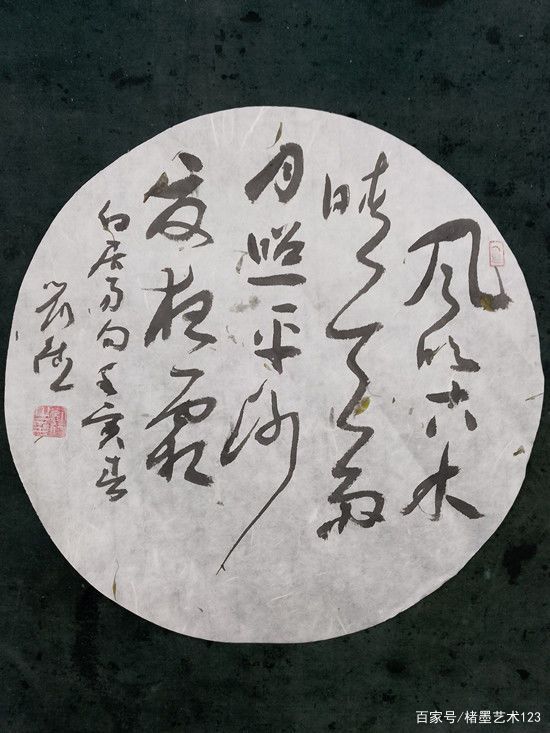 风吹古木
晴天雨
月照平沙
夏夜霜
白居易句己亥春
百家号/楮墨艺术123